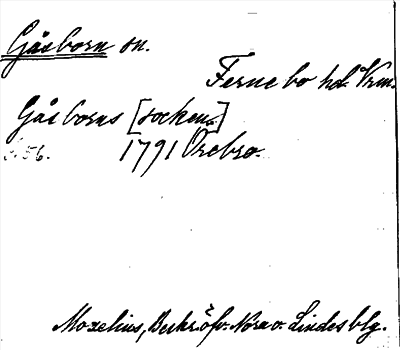 Gåsborn sn.
Fernebo hd. Vrm.
Gåsborns [socken]
s. 56. 1791 Örebro.
Moxelius, Beskr. öfv. Nora o. Lindes blg.